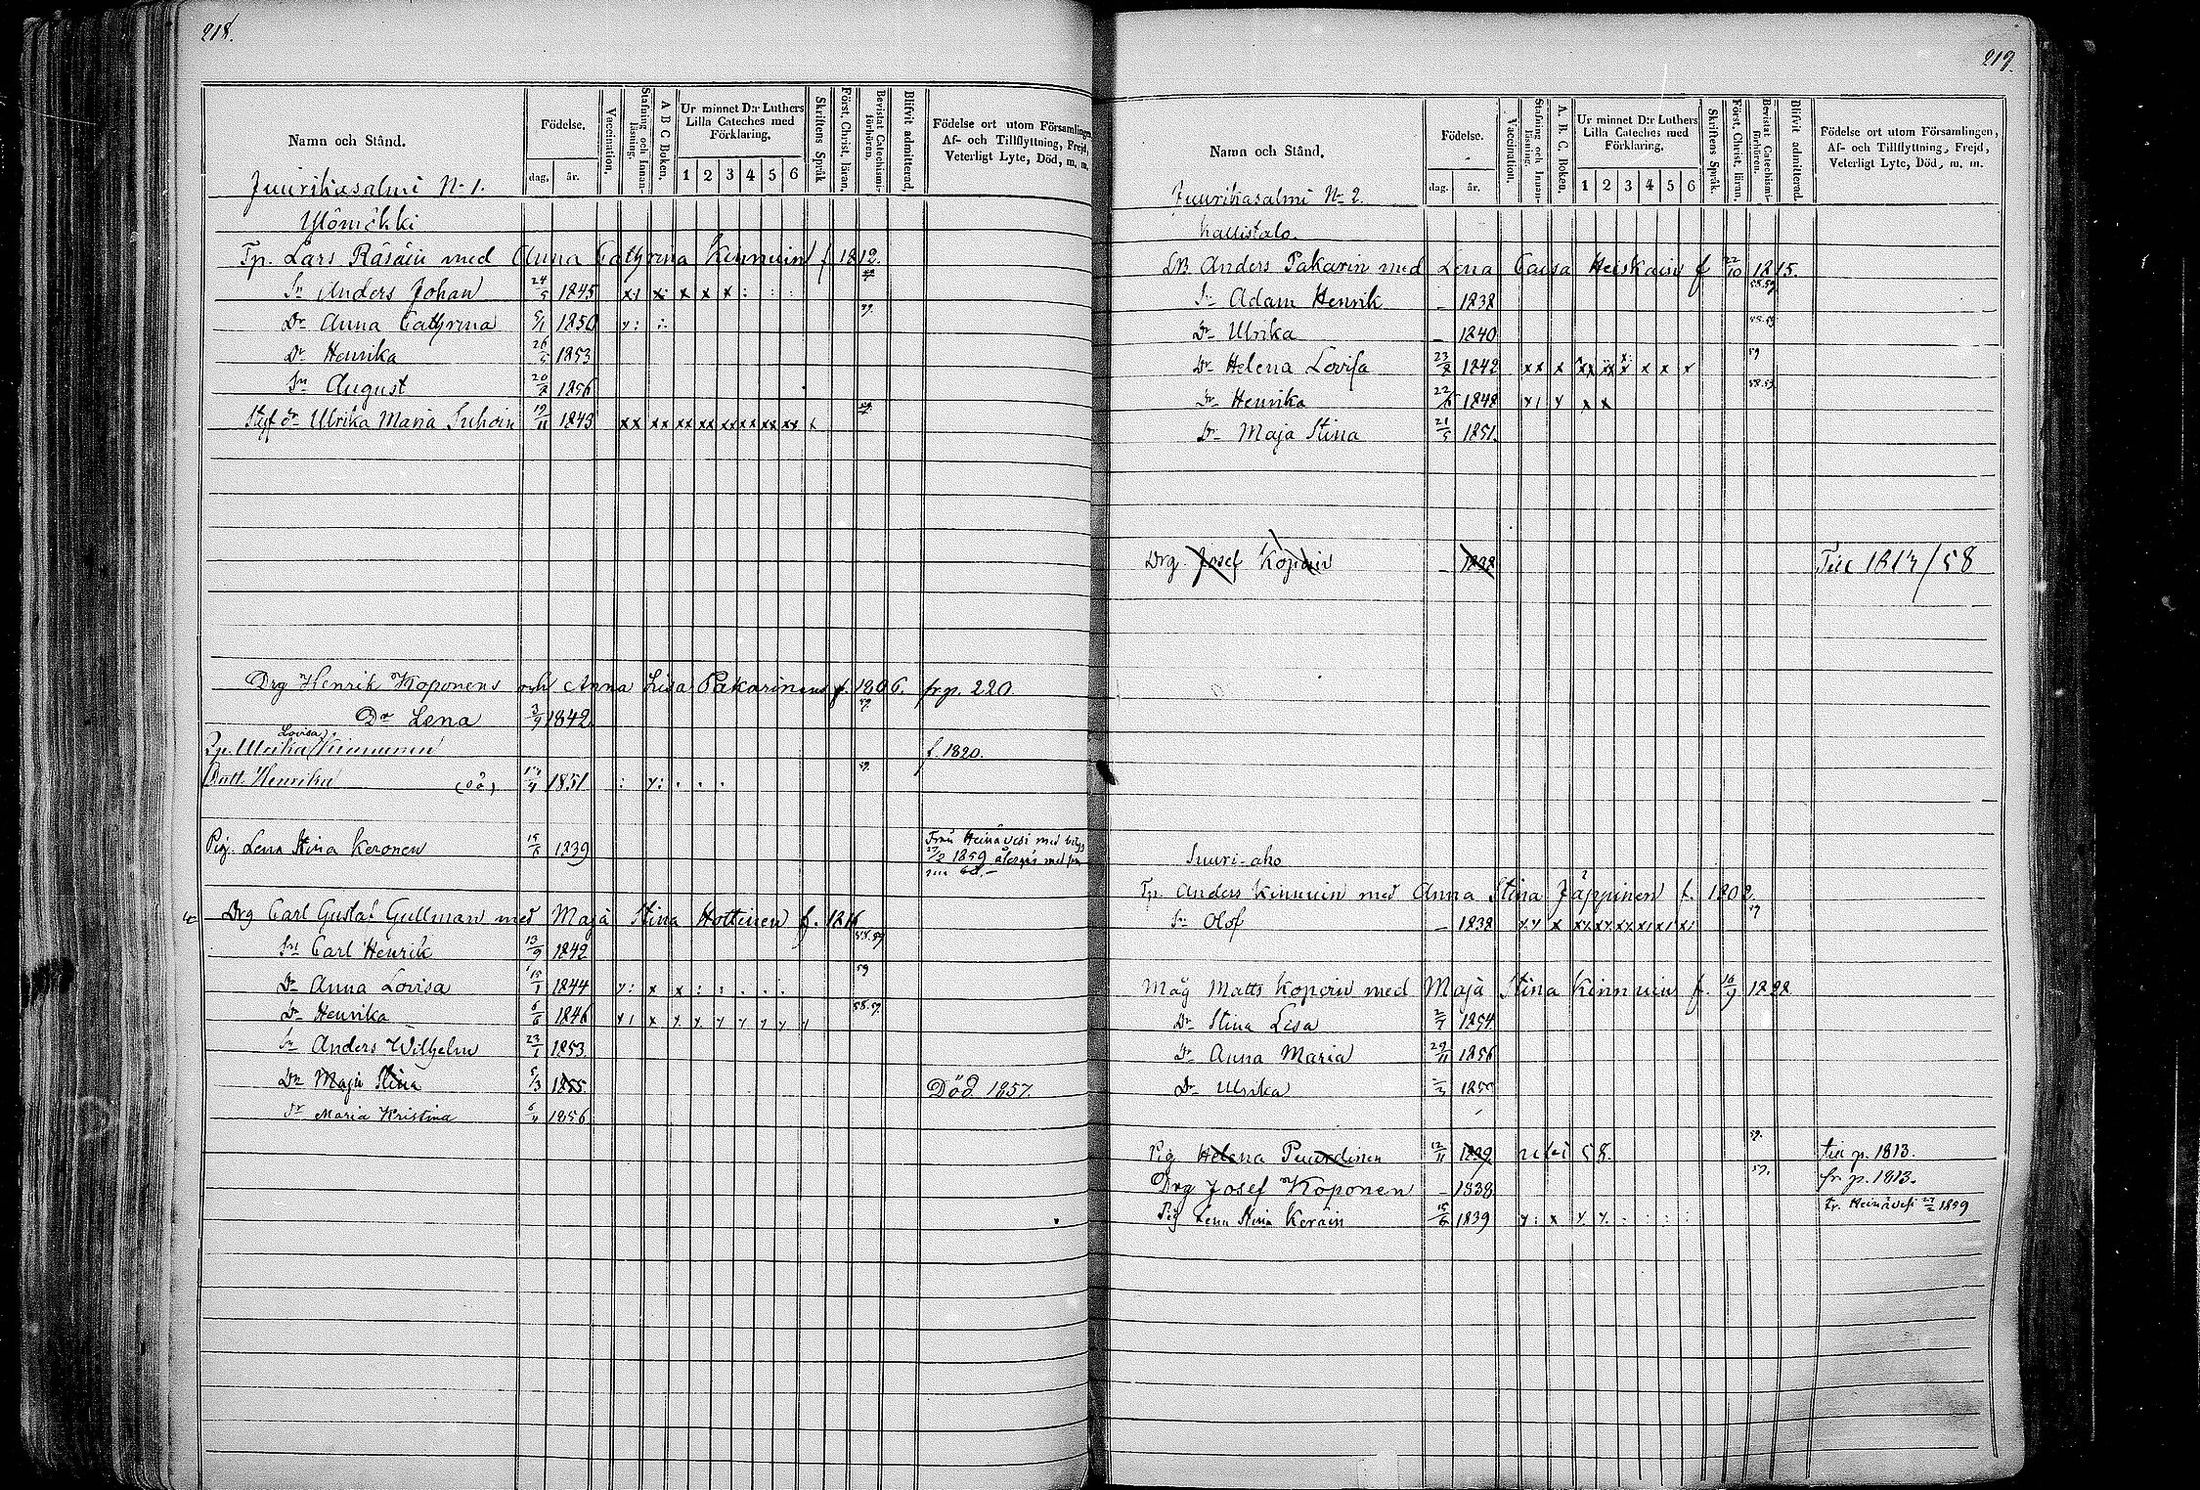 218.
Namn och Stånd.
Födelse.
dag. år.
Vaccination.
Stafning och Innanläsning.
A B C Boken.
Ur minnet D:r Luthers Lilla Cateches med Förklaring.
1 2 3 4 5 6
Skriftens Språk
Först. Christ. läran.
Bevistat Catechismiförhören.
Blifvit admitterad.
Födelse ort utom Församlingen,
Af- och Tillflyttning, Frejd,
Veterligt Lyte, Död, m. m.
Juurikasalmi N- 1.
Ylömäkki
Tp. Lars Räsäin med Anna Cathrina Kinnuin f 1812.
Sn Anders Johan 24/5 1845 x: x: x x x : : :
Dr Anna Cathrina 5/1 1850 59.
Dr Henrika 26/5 1853
Sn August 20/8 1856
Styf dr Ulrika Maria Suhoin 19/11 1843 xx xx xx xx xx xx xx xx x
Drg Henrik Koponens och Anna Lisa Pakarinens f. 1806. fr p. 220.
Dr Lena 3/9 1842 59.
Lovisa
Ulrika Kinnunen f. 1820.
Dott. Henrika (oä) 1851 59.
Pig. Lena Stina Keronen 15/6 1839 Från Heinävesi med
27/2 1859 återgås med
Drg Carl Gustaf Gullman med Maja Stina Hottinen f. 1816
Sn Carl Henrik 13/9 1842 58.59
Dr Anna Lovisa 15/1 1844 59
Dr Henrika 6/6 1846 58.59
Sn Anders Wilhelm 23/1 1853
Dr Maja Stina 5/3 1855 Död 1857.
Dr Maria Kristina 6/4 1856
219.
Namn och Stånd.
Födelse.
dag. år.
Vaccination.
Stafning och Innanläsning.
A. B. C. Boken.
Ur minnet D:r Luthers Lilla Cateches med Förklaring.
1 2 3 4 5 6
Skriftens Språk.
Först. Christ. läran.
Bevistat Catechismiförhören.
Blifvit admitterad.
Födelse ort utom Församlingen,
Af- och Tillflyttning, Frejd,
Veterligt Lyte, Död, m. m.
Juurikasalmi N- 2.
Kallistalo.
Anders Pakarin med Lena Caisa Heiskain f 22/10 1815.
Sn Adam Henrik - 1838 58.59
Dr Ulrika - 1840 58.59
Dr Helena Lovisa 23/8 1842 59
Dr Henrika 22/6 1848 58.59
Dr Maja Stina 21/5 1851.
Drg. Josef Kopoin - 1838 Till 1813/58
Suuri-aho
Tp. Anders Kinnuin med Anna Stina Jäppinen f. 1802.
Sn Olof - 1838 59
Måg Matts Kopoin med Maja Stina Kinnuin f. 1828
Dr Stina Lisa 2/7 1854
Dr Anna Maria 29/11 1856
Dr Ulrika
Pig Helena Puurdinen 12/11 1839 58. 59. till p. 1813.
Drg Josef Koponen - 1838 59. fr p. 1813.
Pig Lena Stina Keräin 15/6 1839 fr. Heinävesi 27/2 1859